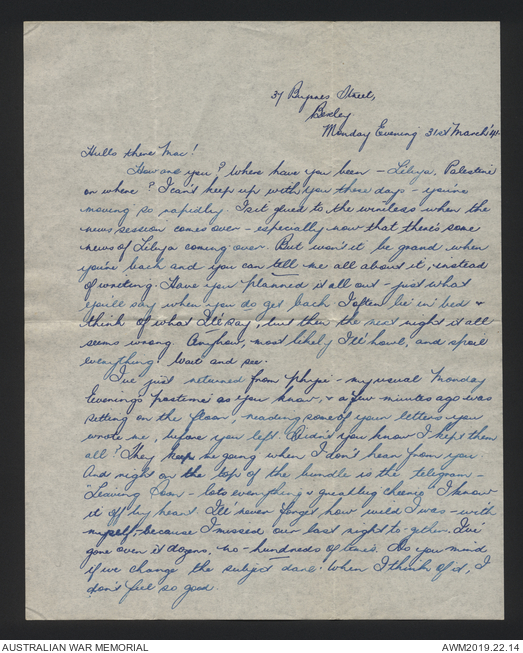 37 Byrnes Street,
Bexley
Monday Evening 31st March '41.
Hullo there Mac!
How are you? Where have you been – Libya, Palestine
or where? I can't keep up with you these days – you're
moving so rapidly. I sit glued to the wireless when the
news session comes over – especially now that there's some
news of Libya coming over. But won't it be grand when
you're back and you can tell me all about it, instead
of writing. Have you planned it all out – just what
you'll say when you do get back. I often lie in bed &
think of what I'll say, but then the next night it all
seems wrong. Anyhow, most likely I'll howl, and spoil
everything! Wait and see.
I've just returned from "phys" – my usual Monday
evening's pastime as you know, & a few minutes ago was
sitting on the floor, reading some of your letters you
wrote me, before you left. Didn't you know I kept them
all? They keep me going when I don't hear from you.
And right on the top of the bundle is the telegram –
"Leaving soon – lots everything & great big cheerio". I know
it off by heart. I'll never forget how wild I was – with
myself, because I missed our last night to-gether. I've
gone over it dozens, no – hundreds of times. Do you mind
if we change the subject dare? When I think of it, I
don't feel so good.
AUSTRALIAN WAR MEMORIAL
AWM2019.22.14